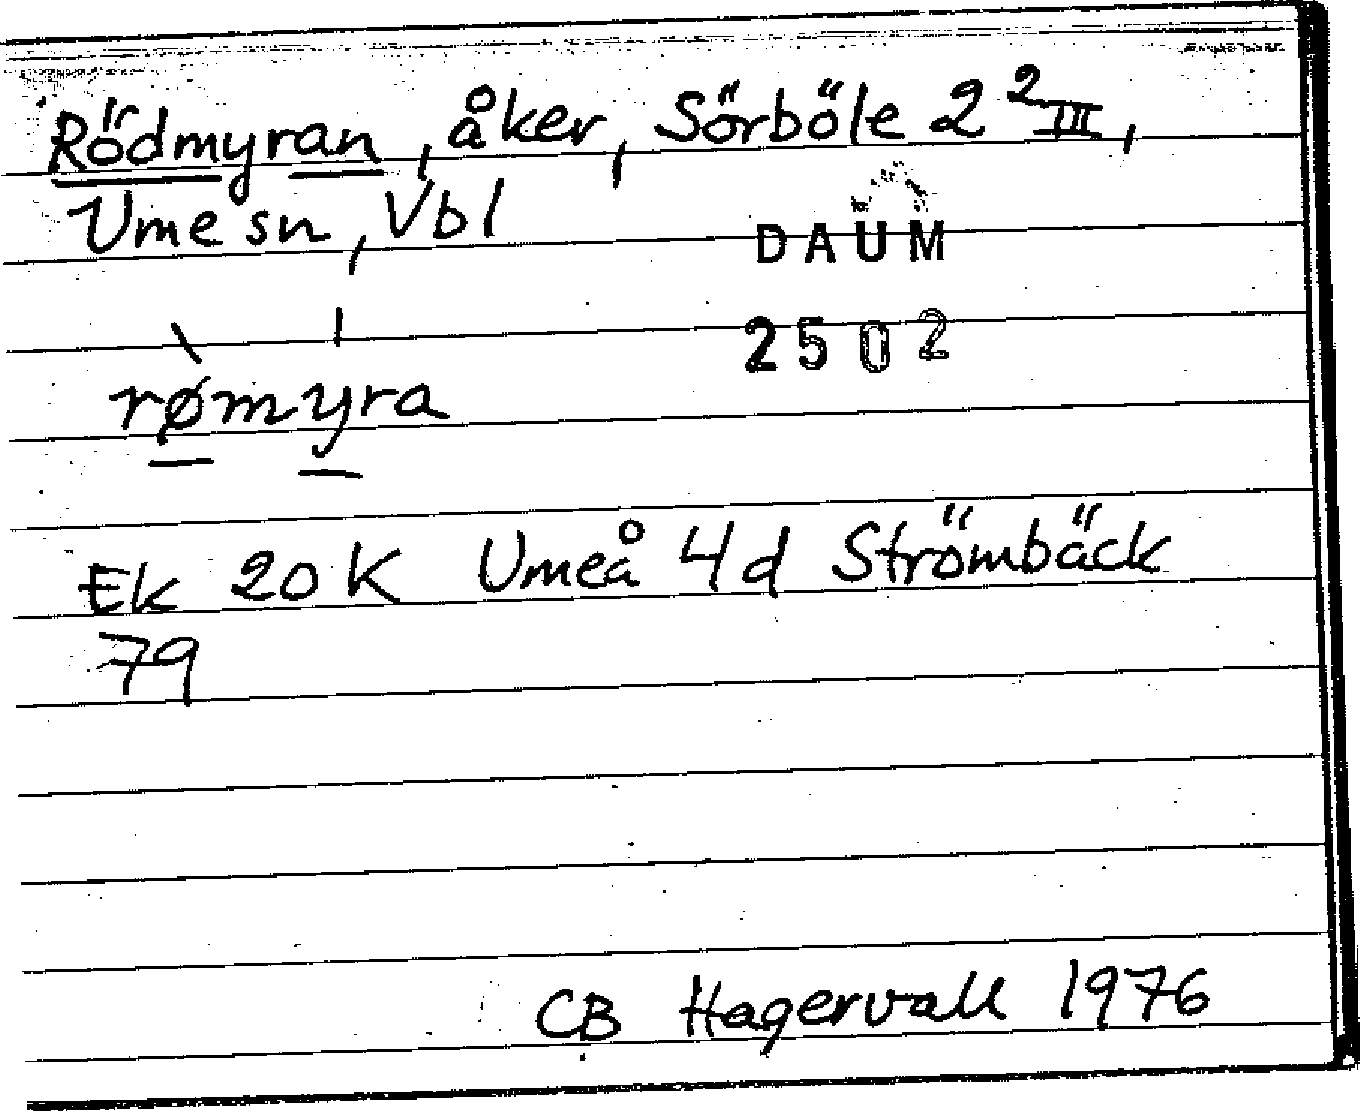 Rödmyran, åker, Sörböle 2²III,
Ume sn, Vbl
DAUM
2502
rømyra
Ek 20K Umeå 4d Strömbäck
79
CB Hagervall 1976